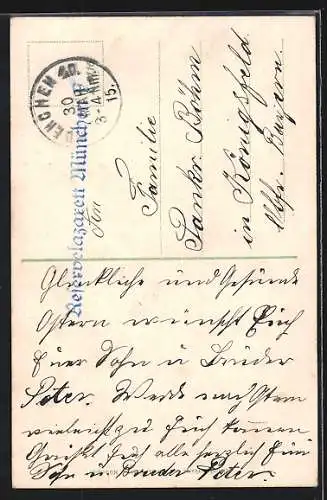 MÜNCHEN
30
MÄR
3-4 Nm
15.
Reservelazarett München
An
Familie
Pankr. Böhm
in Königsfeld
Bayern.
Glückliche und Gesunde
Ostern wünscht Euch
Euer Sohn u Bruder
Peter. Werde nach Ostern
vieleicht zu Euch kommen
Grüßt Euch alle herzlich Euer
Sohn u Bruder Peter.